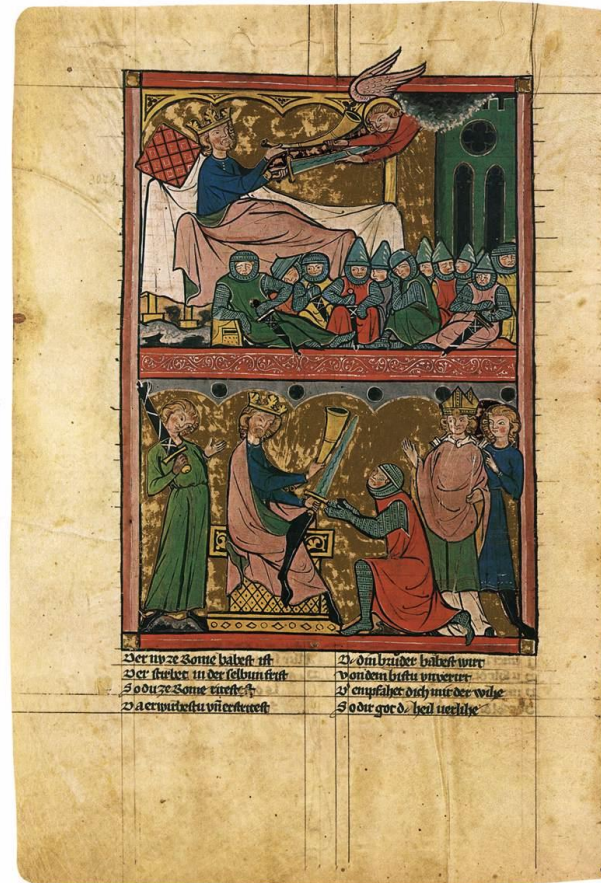 Der nv ze Rome babest ist
Der stirbet in der selbun frist
So du ze Rome ritest
Da erwirbestu vn̄ erstritest
D. din brůder babest wirt
von dem bistu vnverirt
D' empfahet dich mit der wihe
So dir got d. heil verlihe